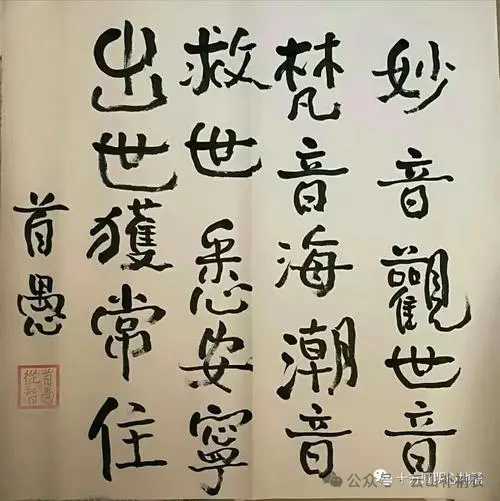 妙音觀世音
梵音海潮音
救世悉安寧
出世獲常住
首愚
首愚
從智
公众号